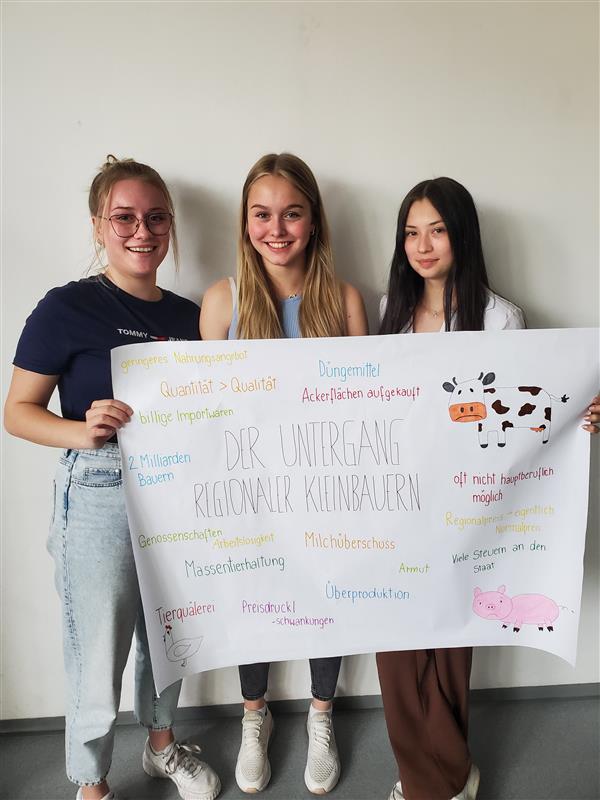 TOMMY JEANS
geringeres Nahrungsangebot
Düngemittel
Quantität > Qualität
Ackerflächen aufgekauft
billige Importwaren
DER UNTERGANG
REGIONALER KLEINBAUERN
2 Milliarden
Bauern
oft nicht hauptberuflich
möglich
Regionalpreis → eigentlich
Normalpreis
Genossenschaften
Arbeitslosigkeit
Milchüberschuss
Massentierhaltung
Armut
Viele Steuern an den
Staat
Überproduktion
Tierquälerei
Preisdruck!
-schwankungen